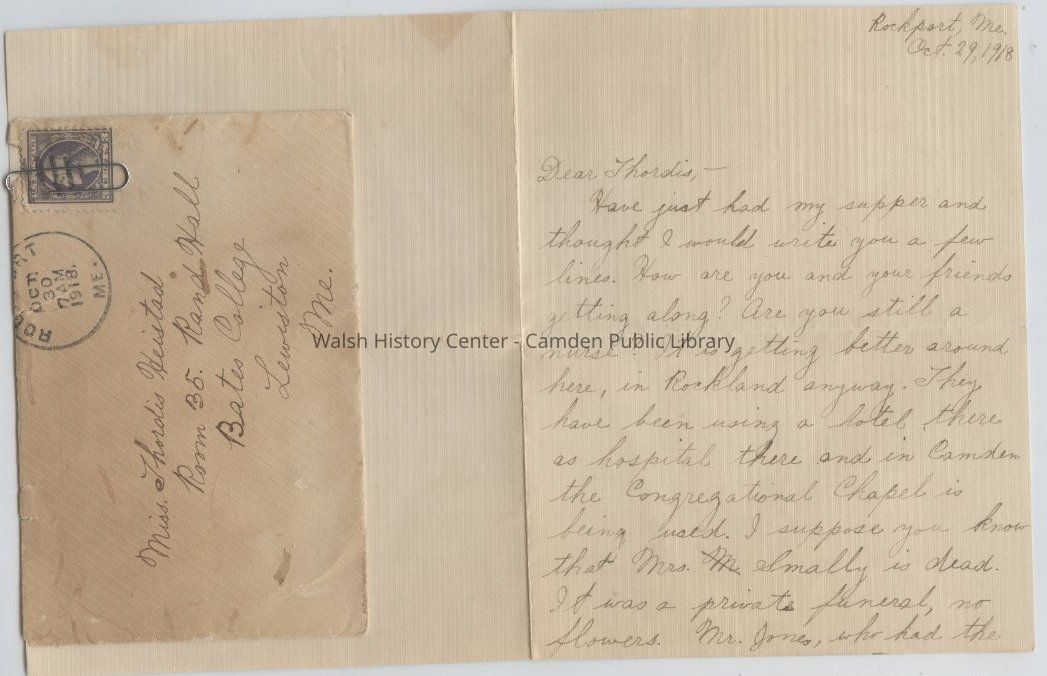 ROCKPORT
OCT
30
7 AM
1918.
ME.
Miss. Thordis Heistad
Room 35. Rand Hall
Bates College
Lewiston
Me.
Rockport, Me.
Oct. 29, 1918
Dear Thordis,—
Have just had my supper and
thought I would write you a few
lines. How are you and your friends
getting along? Are you still a
nurse? It is getting better around
here, in Rockland anyway. They
have been using a hotel there
as hospital there and in Camden
the Congregational Chapel is
being used. I suppose you know
that Mrs. M. Smally is dead.
It was a private funeral, no
flowers. Mr. Jones, who had the
Walsh History Center - Camden Public Library